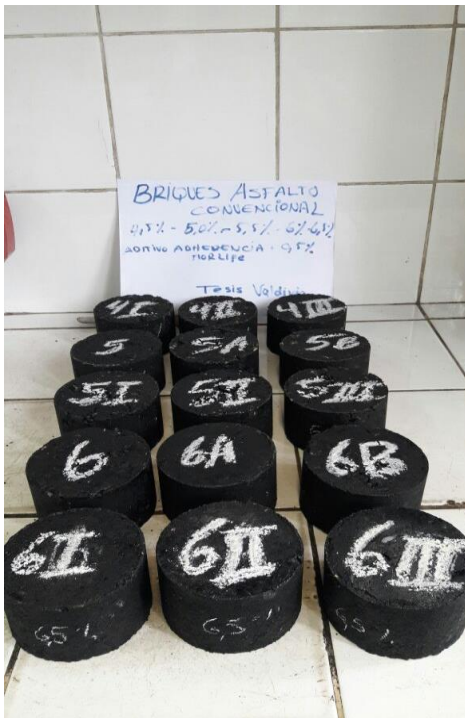 BRIQUES ASFALTO
CONVENCIONAL
4,5% - 5,0% - 5,5% - 6% - 6,5%
ADITIVO ADHERENCIA : 0,5%
MORLIFE
Tesis Valdivia
4I 4II 4III
5 5A 5B
5I 5II 5III
6 6A 6B
6II 6II 6III
6,5% 6,5% 6,5%